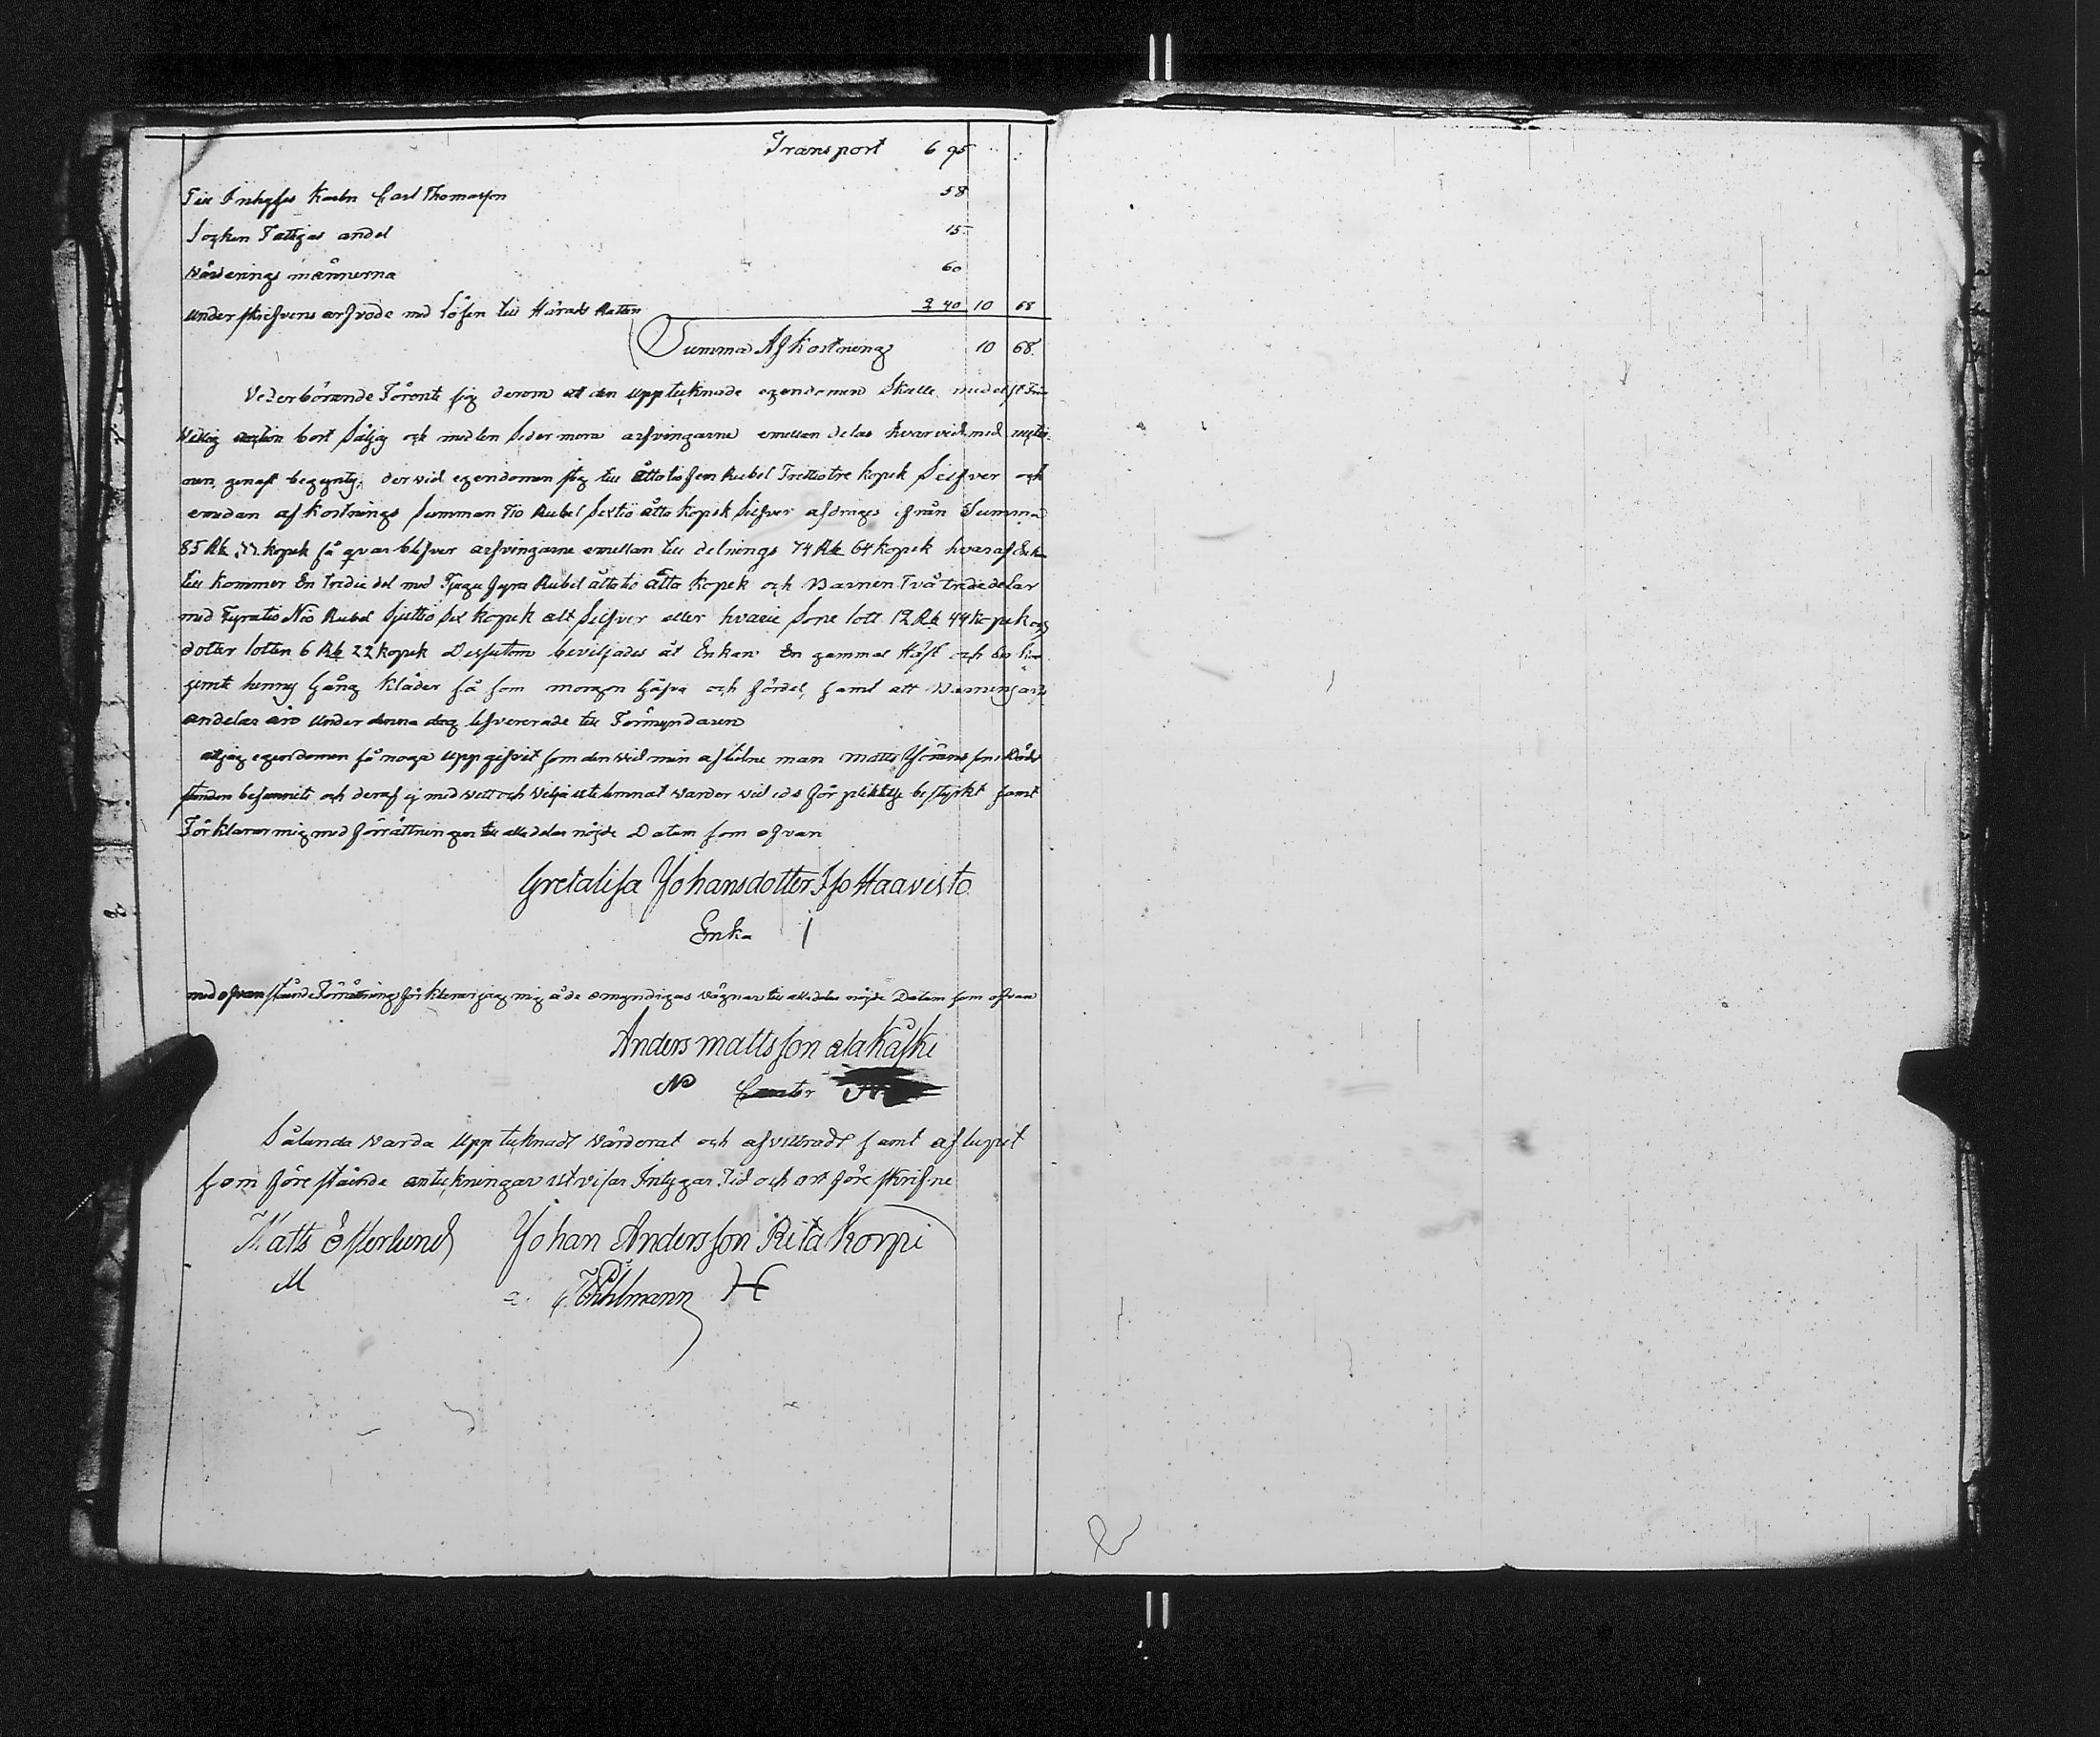 Transport 6 95
Till Inhyses Karln Carl Thomasson 58
Sozken Fattigas andel 15
Värderings männerna 60
underskrefvens arfvode med Lösen till Härads Rätten 2 40 10 68
Summa Afkostning 10 68
Vederbörande Förente sig derom at den upptecknade egendomen Skulle medelst
villig auction bort Säljas och medlen Sedermera arfvingarne emellan delas hvarvid med auctio
nen genast begyntes, der vid egendomen steg till åttatiofem Rubel Trettiotre kopek Silfver och
emedan afkostnings Summan Tio Rubel Sextio åtta kopek Silfver afdrages ifrån Summa
85 Rb kopek så qvar blifver arfvingarne emellan till delnings 74 Rb 64 kopek hvaraf Enkan
till kommer En tredie del med Tjugu fyra Rubel åttatio åtta kopek och Barnen Två trededelar
med Fyratio Nio Rubel Sjuttio Sex kopek alt Silfver eller hvarie Sone lott 12 Rb 44 kopek og
dotter lotten 6 Rb 22 kopek Dessutom beviljades åt Enkan En gammal Häst och
jemte hennes Gång kläder så som morgon Gåfva och fördel, samt att Barnens arfs
andelar äro under denna dag lefvererade till Förmyndaren
at jag egendomen så noga uppgifvit som den vid min aflidne man Matts Göransson Döds
stunden befunnits och deraf ej med vett och vilja utelemnat varder vid eds förpliktelse bestyrkt samt
Förklarar mig med förrättningen till alla delar nöjde Datum som ofvan
Gretalisa Johansdotter Iso Haavisto
Enka
med ofvanstånde Förrättning förklarar jag mig å de omyndigas vägnar till alla delar nöjde Datum som ofvan
Anders Mattsson ala Kåski
Sålunda varda upptecknadt värderat och afvittradt samt aflupit
som förestående anteckningar utvisar Intygar Tid och ort föreskrifne
Matts Österlund Johan Andersson Rita Korpi
M H